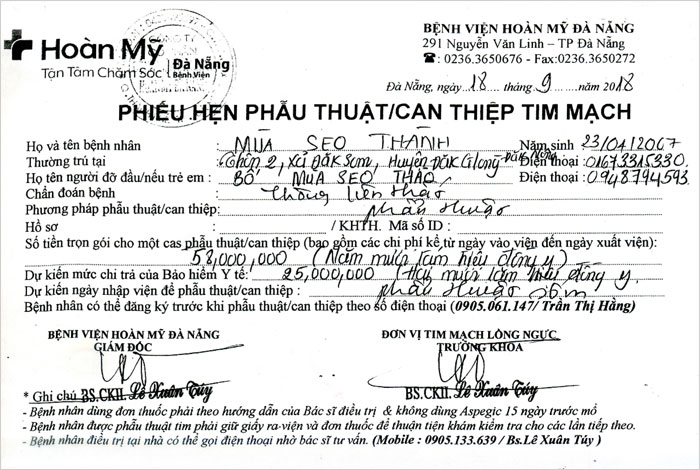 Hoàn Mỹ
Tận Tâm Chăm Sóc
Đà Nẵng
Bệnh Viện
BỆNH VIỆN HOÀN MỸ ĐÀ NẴNG
291 Nguyễn Văn Linh – TP Đà Nẵng
☎: 0236.3650676 - Fax:0236.3650272
Đà Nẵng, ngày 18 tháng 9 năm 2018
PHIẾU HẸN PHẪU THUẬT/CAN THIỆP TIM MẠCH
Họ và tên bệnh nhân : MÙA SEO THÀNH Năm sinh 23/04/2007
Thường trú tại : Thôn 2, Xã Đăk Som, Huyện Đăk Glong Đăk Nông Điện thoại : 01673315330
Họ tên người đỡ đầu/nếu trẻ em : BỐ MÙA SEO THÀO Điện thoại : 0948794593
Chẩn đoán bệnh : Thông liên thất
Phương pháp phẫu thuật/can thiệp: phẫu thuật
Hồ sơ : / KHTH. Mã số ID :
Số tiền trọn gói cho một cas phẫu thuật/can thiệp (bao gồm các chi phí kể từ ngày vào viện đến ngày xuất viện):
58,000,000 (Năm mươi tám triệu đồng y)
Dự kiến mức chi trả của Bảo hiểm Y tế: 25,000,000 (Hai mươi lăm triệu đồng y.
Dự kiến ngày nhập viện để phẫu thuật/can thiệp : phẫu thuật sớm
Bệnh nhân có thể đăng ký trước khi phẫu thuật/can thiệp theo số điện thoại (0905.061.147/ Trần Thị Hằng)
BỆNH VIỆN HOÀN MỸ ĐÀ NẴNG
GIÁM ĐỐC
ĐƠN VỊ TIM MẠCH LỒNG NGỰC
TRƯỞNG KHOA
* Ghi chú BS.CKII. Lê Xuân Túy
BS.CKII. Lê Xuân Túy
- Bệnh nhân dùng đơn thuốc phải theo hướng dẫn của Bác sĩ điều trị & không dùng Aspegic 15 ngày trước mổ
- Bệnh nhân được phẫu thuật tim phải giữ giấy ra-viện và đơn thuốc để thuận tiện khám kiểm tra cho các lần tiếp theo.
- Bệnh nhân điều trị tại nhà có thể gọi điện thoại nhờ bác sĩ tư vấn. (Mobile : 0905.133.639 / Bs.Lê Xuân Túy )